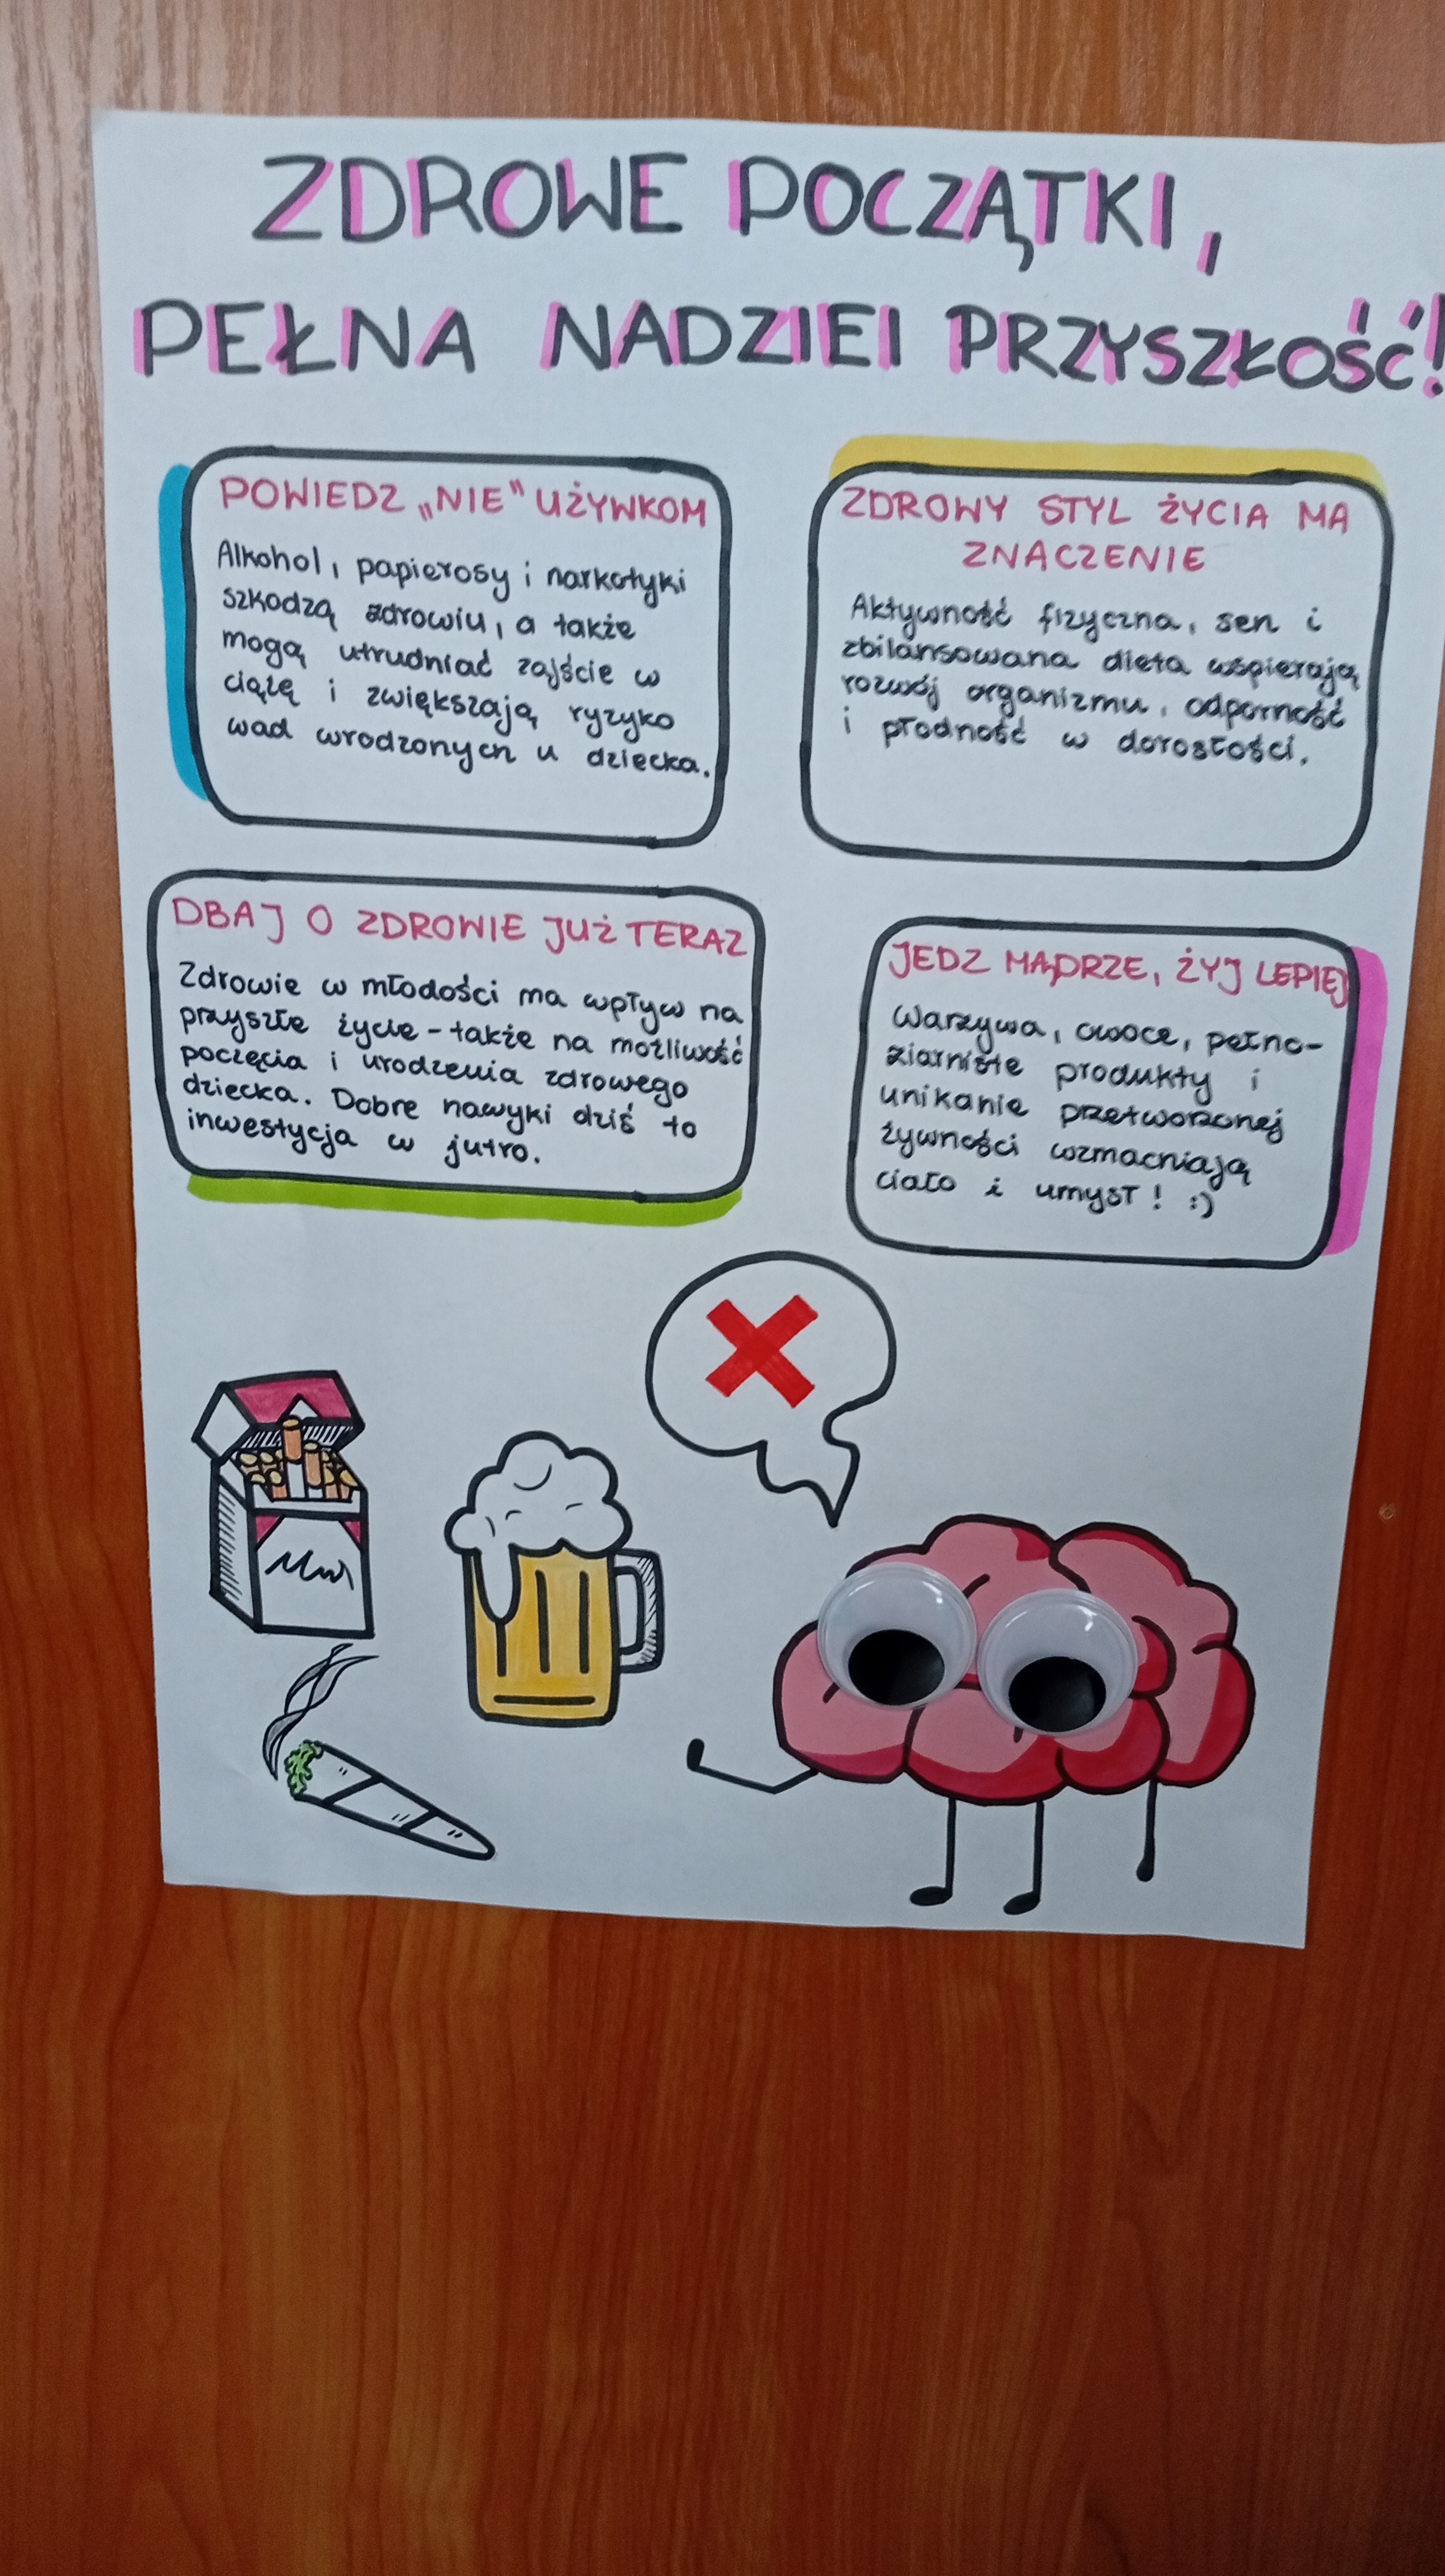 ZDROWE POCZĄTKI,
PEŁNA NADZIEI PRZYSZŁOŚĆ!
POWIEDZ „NIE" UŻYWKOM
Alkohol, papierosy i narkotyki
szkodzą zdrowiu, a także
mogą utrudniać zajście w
ciążę i zwiększają ryzyko
wad wrodzonych u dziecka.
ZDROWY STYL ŻYCIA MA
ZNACZENIE
Aktywność fizyczna, sen i
zbilansowana dieta wspierają
rozwój organizmu, odporność
i płodność w dorosłości.
DBAJ O ZDROWIE JUŻ TERAZ
Zdrowie w młodości ma wpływ na
przyszłe życie - także na możliwość
poczęcia i urodzenia zdrowego
dziecka. Dobre nawyki dziś to
inwestycja w jutro.
JEDZ MĄDRZE, ŻYJ LEPIEJ
Warzywa, owoce, pełno-
ziarniste produkty i
unikanie przetworzonej
żywności wzmacniają
ciało i umysł! :)